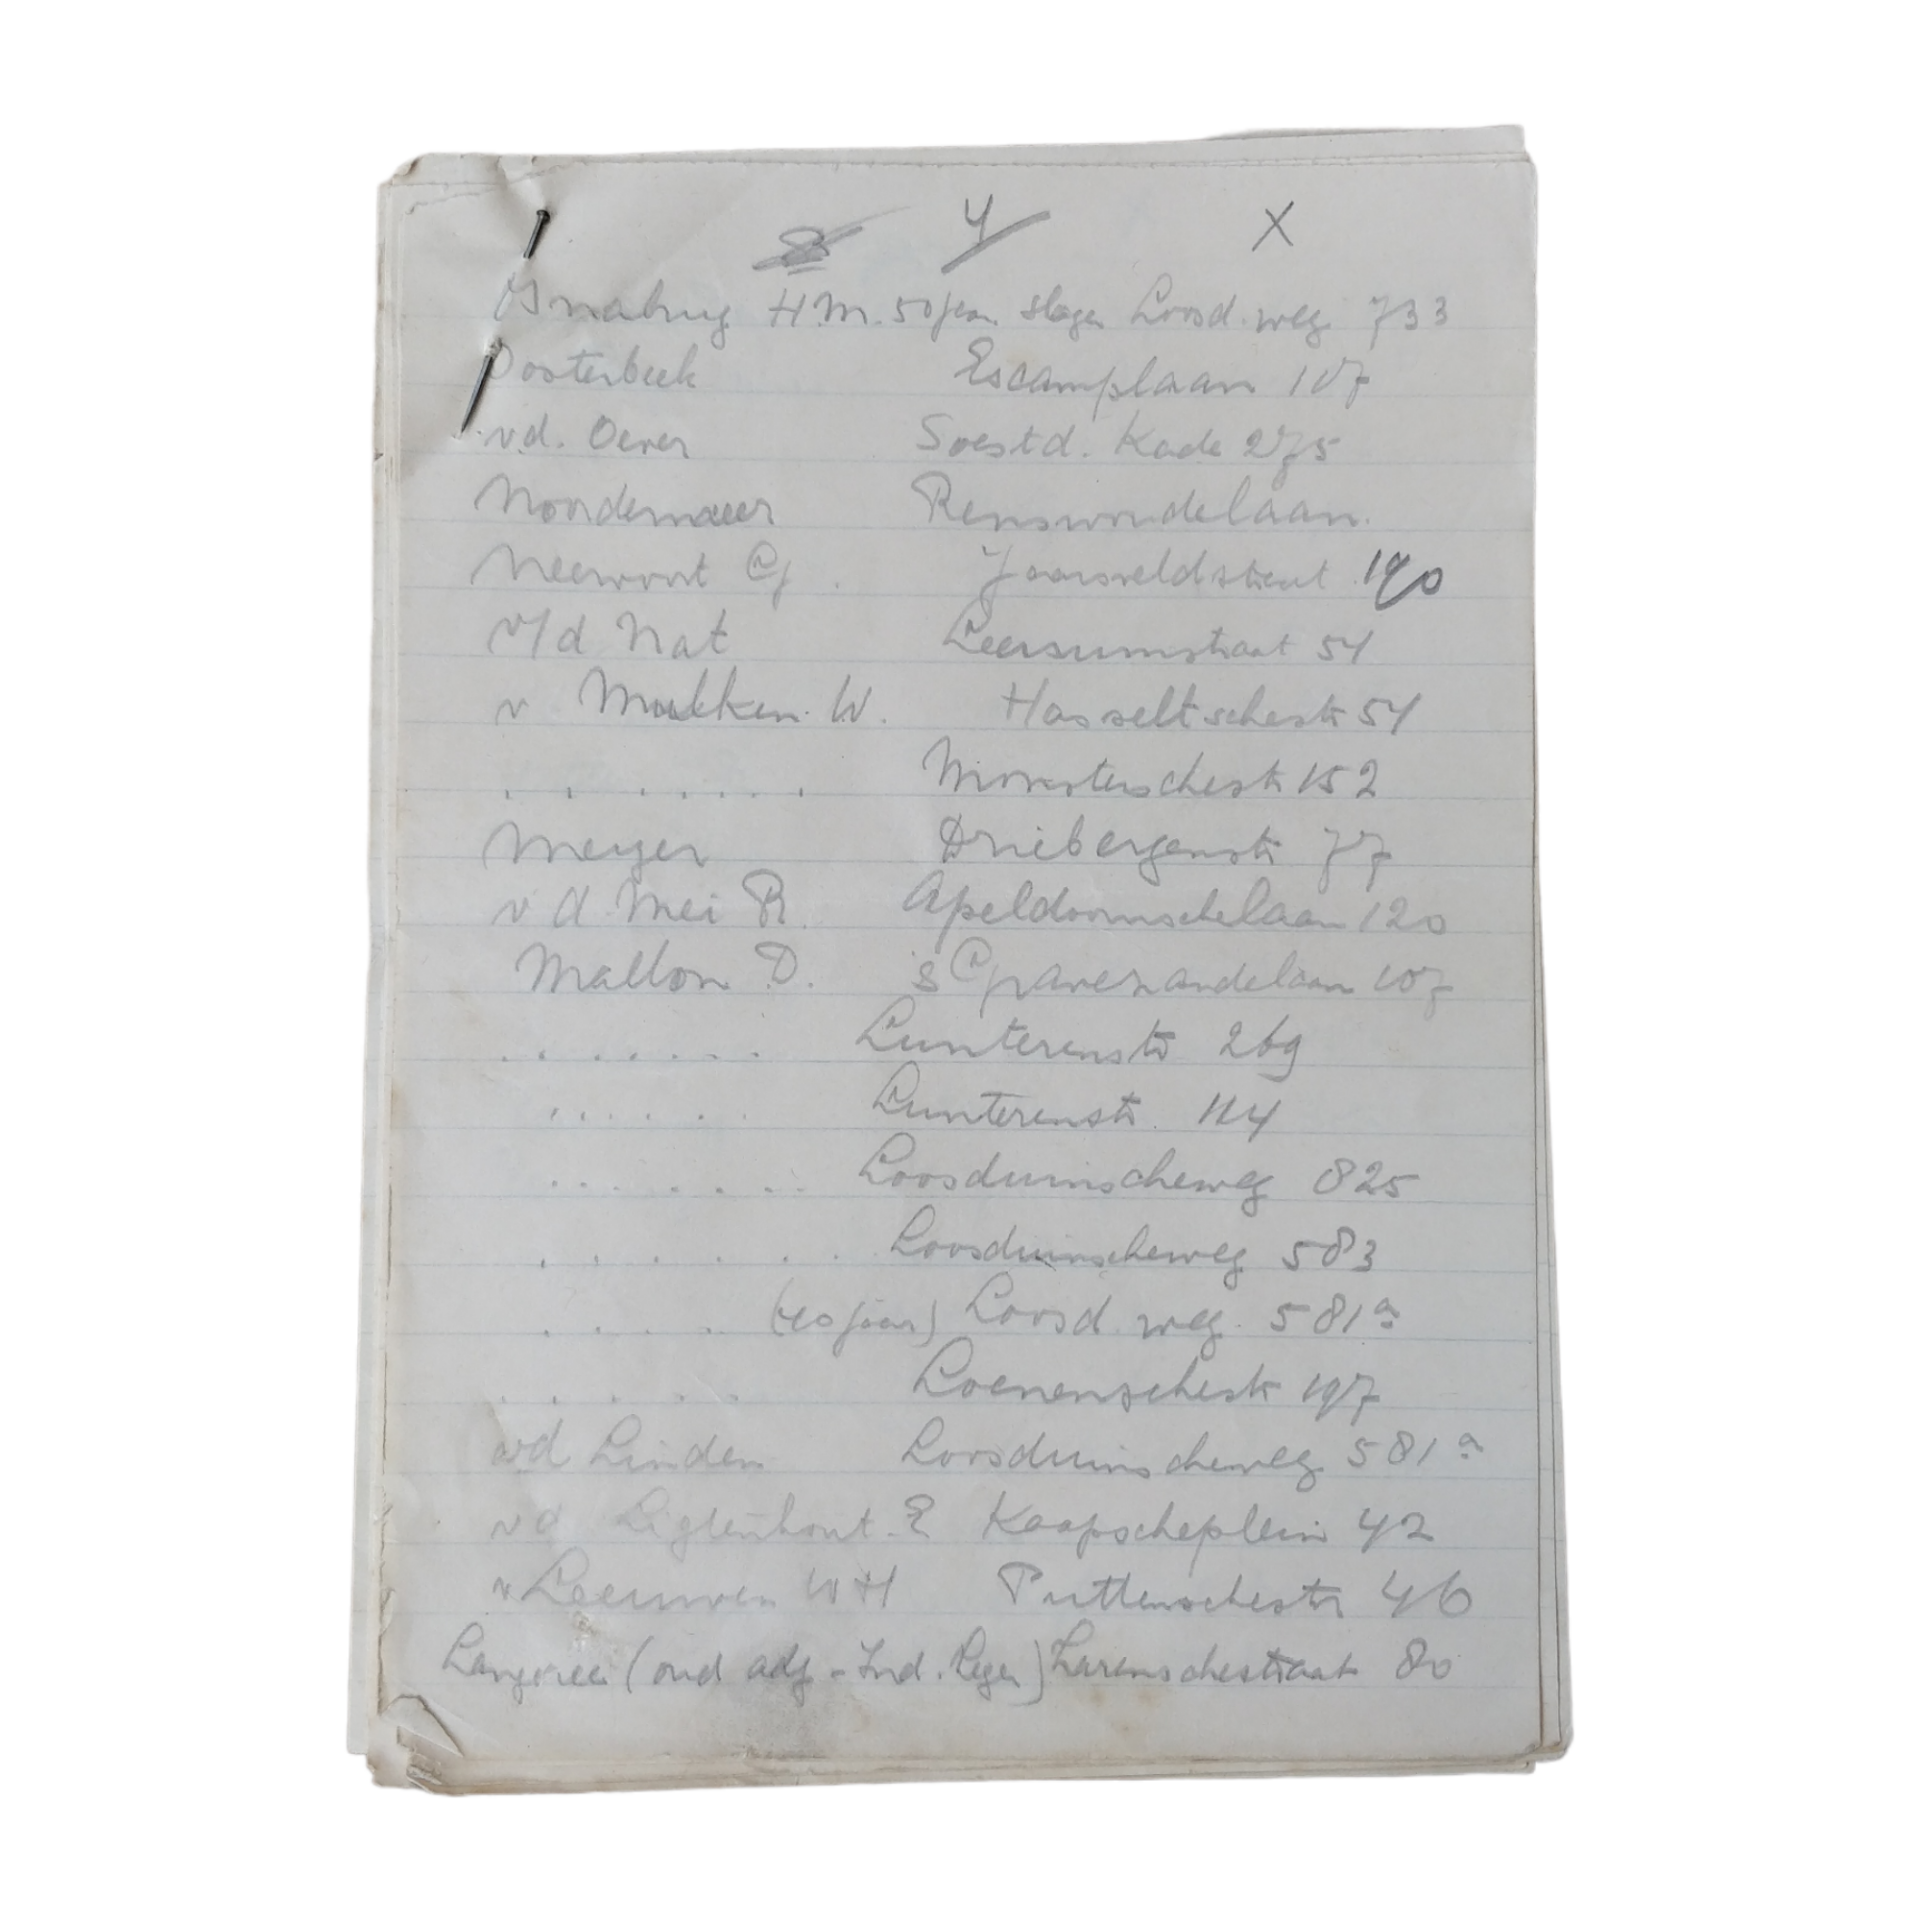 4 X
H.M. 50 jaar slager Loosd. weg 733
Oosterbeek Escamplaan 107
v.d. Oever Soestd. Kade 275
Noordermeer Renswoudelaan.
Neervoort Jaarsveldstraat 190
v/d Nat Leersumstraat 54
v Mulken W. Hasseltschestr 54
. . . . . . . Monsterschestr 152
Meyer Driebergenstr 77
v d Mei R. Apeldoornschelaan 120
Mallon D. 's Gravenzandelaan 107
. . . . . . . Lunterenstr 269
. . . . . . Lunterenstr. 114
. . . . . . . Loosduinscheweg 825
. . . . . . . Loosduinscheweg 583
. . . . (40 jaar) Loosd. weg. 581a
. . . . . . Loenenschestr 197
vd Linden Loosduinscheweg 581a
vd Ligtenhout. E Kaapscheplein 42
v Leeuwen W H Puttenschestr 46
(oud adj - Ind. Leger) Larenschestraat 80